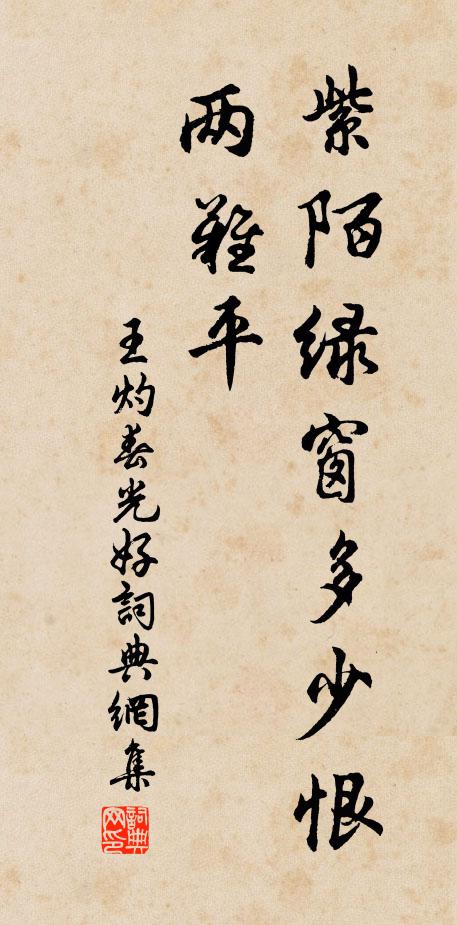 紫陌绿窗多少恨
两难平
王灼春光好詞典網集
詞典网印